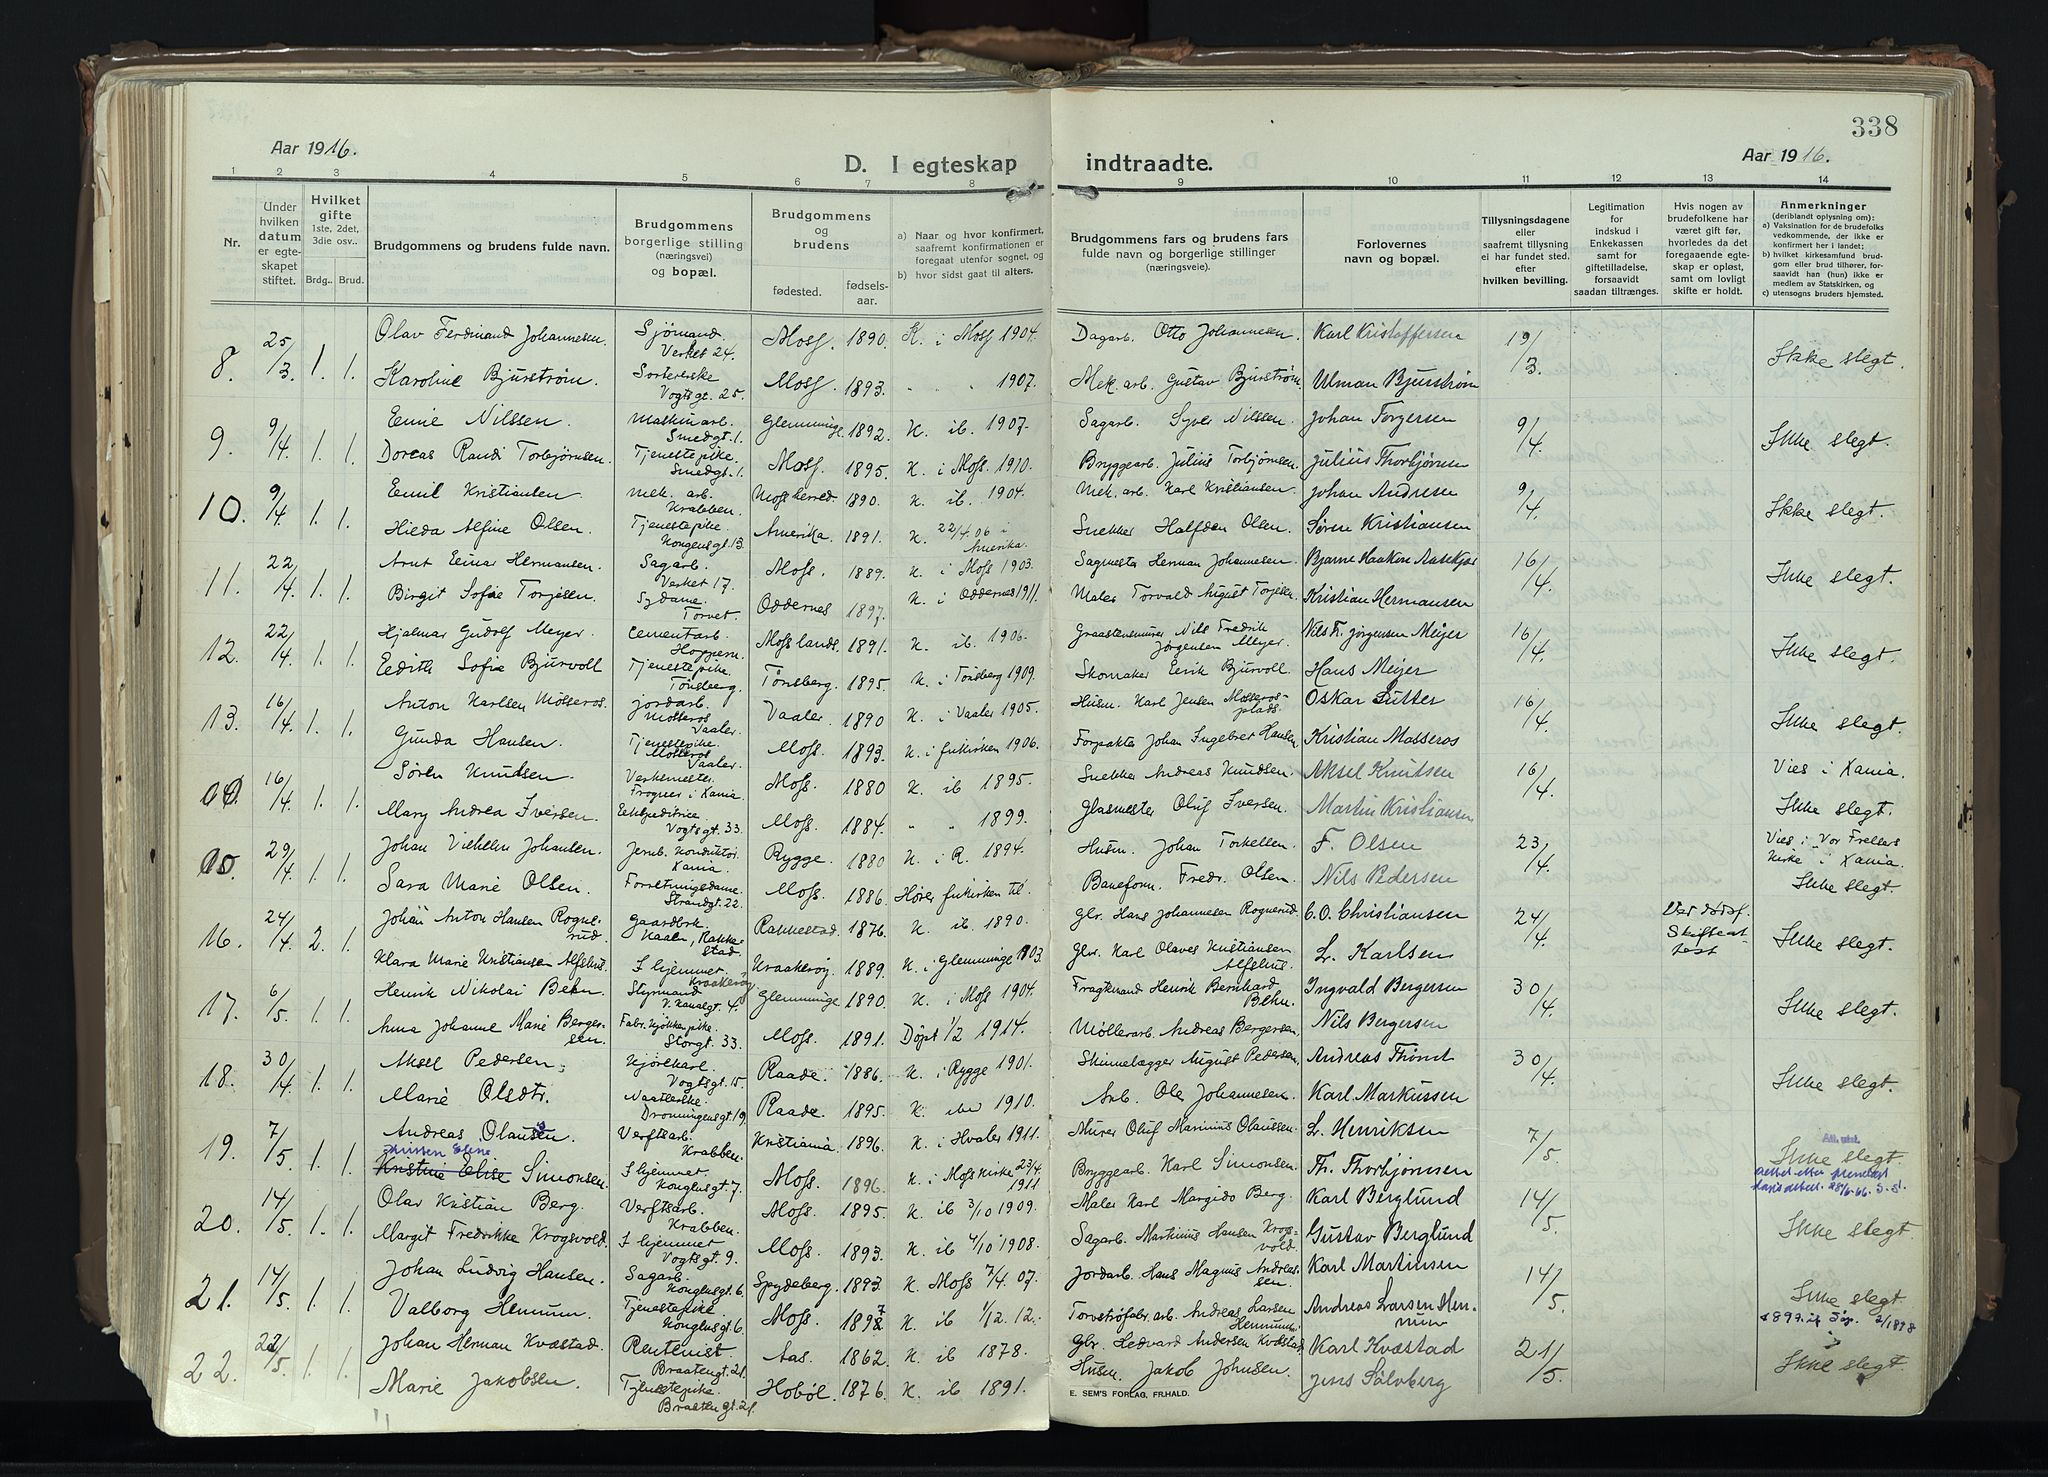 338
Aar 1916.
D. I egteskap indtraadte.
Aar 1916.
1 2 3 4 5 6 7 8 9 10 11 12 13 14
Nr.
Under hvilken datum er egteskapet stiftet.
Hvilket gifte 1ste, 2det, 3die osv..
Brdg.. Brud.
Brudgommens og brudens fulde navn.
Brudgommens borgerlige stilling (næringsvei) og bopæl.
Brudgommens og brudens
fødested. fødselsaar.
a) Naar og hvor konfirmert, saafremt konfirmationen er foregaat utenfor sognet, og
b) hvor sidst gaat til alters.
Brudgommens fars og brudens fars fulde navn og borgerlige stillinger (næringsveie).
Forlovernes navn og bopæl.
Tillysningsdagene eller saafremt tillysning ei har fundet sted. efter hvilken bevilling.
Legitimation for indskud i Enkekassen samt for giftetilladelse, forsaavidt saadan tiltrænges.
Hvis nogen av brudefolkene har været gift før, hvorledes da det foregaaende egteskap er opløst, samt om lovligt skifte er holdt.
Anmerkninger (deriblandt oplysning om):
a) Vaksination for de brudefolks vedkommende, der ikke er konfirmert her i landet;
b) hvilket kirkesamfund brudgom eller brud tilhører, forsaavidt han (hun) ikke er medlem av Statskirken, og
c) utensogns bruders hjemsted.
8. 25/3. 1. 1. Olav Ferdinand Johannesen. Sjømand. Verket 24. Moss. 1890. K. i Moss 1904. Dagarb. Otto Johannesen. Karl Kristoffersen 19/3. Ikke slegt.
Karoline Bjurstrøm. Sortererske Vogtsgt. 25. Moss. 1893. " " 1907. Mek. arb. Gustav Bjurstrøm. Ulman Bjurstrøm
9. 9/4. 1. 1. Nilssen. Maskinarb. Smedgt. 1. Glemminge 1892. K. ib. 1907. Sagarb. Syver Nilssen. Johan Torgersen 9/4. Ikke slegt.
Dorcas Randi Torbjørnsen. Tjenestepike. Smedgt. 1. Moss. 1895. K. i Moss. 1910. Bryggearb. Julius Torbjørnsen. Julius Thorbjørnsen
10. 9/4. 1. 1. Emil Kristiansen Mek. arb. Krabben. Moss herred. 1890. K. ib. 1904. Mek. arb. Karl Kristiansen. Johan Andresen 9/4. Ikke slegt.
Alfine Olsen. Tjenestepike. Kongensgt. 13. Amerika. 1891. K. 22/4. 06 i Amerika. Snekker Halfdan Olsen. Søren Kristiansen
11. 22/4. 1. 1. Arnt Einar Hermansen. Sagarb. Verket 17. Moss. 1889. K. i Moss 1903. Sagmester Herman Johannesen. Bjarne Haakon 16/4. Ikke slegt.
Birgit Sofie Torjesen. Sydame. Torvet. Oddernes 1897. K. i Oddernes 1911. Maler Torvald August Torjesen. Kristian Hermansen
12. 22/4. 1. 1. Hjalmar Gudolf Meyer. Cementarb. Hoppern. Moss lands. 1891. K. ib. 1906. Graastensmurer Nils Fredrik Jørgensen Meyer. Nils Fr. Jørgensen Meijer 16/4. Ikke slegt.
Edith Sofie Bjurvoll Tjenestepike. Tønsberg. Tønsberg. 1895. K. i Tønsberg 1909. Skomaker Eerik Bjurvoll. Hans Meijer
13. 16/4. 1. 1. Anton Karlsen Mosseros. Jordarb. Mosseros Vaaler. Vaaler. 1890 K. i Vaaler 1905. Husm. Karl Jensen Mosserosplads. Oskar Sutter 16/4. Ikke slegt.
Gunda Hansen. Tjenestepike. Mosseros Vaaler. Moss. 1893. K. i frikirken 1906. Forpakter Johan Ingebret Hansen. Kristian Mosseros
16/4. 1. 1. Søren Knudsen. Verkmester. Frogner i Xania. Moss. 1880 K. ib 1895. Snekker Andreas Knudsen. Aksel Knutsen 16/4. Vies i Xania. Ikke slegt.
Mary Andrea Iversen. Ekspeditrice Vogtsgt. 33. Moss. 1884. " " 1899. Glasmester Oluf Iversen. Martin Kristiansen
29/4. 1. 1. Johan Vilhelm Johansen. Jernb. Konduktør. Xania. Rygge. 1880 K. i R. 1894. Husm. Johan Torkelsen. F. Olsen 23/4. Vies i Vor Frelsers kirke i Xania. Ikke slegt.
Sara Marie Olsen. Forretningsdame. Strandgt. 22. Moss. 1886. Hører frikirken til. Baneform. Fredr. Olsen. Nils Pedersen
16. 24/4. 2. 1. Johan Anton Hansen Rognerud. Gaardbr. Rakkestad. Rakkestad. 1876. K. ib. 1890. Gbr. Hans Johannesen Rognerud. C. O. Christiansen 24/4. Skifteattest Ikke slegt.
Klara Marie Kristiansen Alfshus. I hjemmet. Kraakerøy. Kraakerøy. 1889. K. i Glemminge 1903. Gbr. Karl Olaves Kristiansen Alfshus. L. Karlsen
17. 6/5. 1. 1. Henrik Nikolai Behn. Styrmand V. Kanalgt. 4. Glemminge 1890. K. i Moss 1904. Fragtemand Henrik Bernhard Behn. Ingvald Bergersen 30/4. Ikke slegt.
Anna Johanne Marie Bergersen. Storgt. 33. Moss. 1891. Døpt 1/2 1914. Møllerarb. Andreas Bergersen. Nils Bergersen
18. 30/4. 1. 1. Aksel Pedersen. Kjørekarl. Vogtsgt. 15. Raade. 1886. K. i Rygge 1901. Skinnelægger August Pedersen. Andreas 30/4. Ikke slegt.
Marie Olsdtr. Dronningensgt. 19. Raade. 1895. K. 1910. Arb. Ole Johannesen. Karl Markussen
19. 7/5. 1. 1. Andreas Olausen. Verftsarb. Krabben. Kristiania 1896. K. i Hvaler 1911. Murer Oluf Marinius Olaussen. L. Henriksen 7/5. Ikke slegt.
Kristine Elise Simonsen. I hjemmet. Kongensgt. 7. Moss. 1896. K. i Moss kirke 23/4. 1911. Bryggearb. Karl Simonsen. Th. Thorbjørnsen
20. 14/5. 1. 1. Olav Kristian Berg. Verftsarb. Krabben. Moss. 1895. K. ib 3/10 1909. Maler Karl Margido Berg. Karl Berglund 14/5. Ikke slegt.
Margit Fredrikke Krogsvold. I hjemmet Vogtsgt. 9. Moss. 1893. K. ib 4/10 1908. Sagarb. Martinius Hansen Krogsvold. Gustav Berglund
21. 14/5. 1. 1. Johan Ludvig Hansen. Sagarb. Kongensgt. 6. Spydeberg. 1893. K. Moss 7/4. 07. Jordarb. Hans Magnus Andreassen. Karl Martinsen 14/5. Ikke slegt.
Valborg Hemnum. Tjenestepike. Kongensgt. 6. Moss. 1897 K. ib 1/12. 12. Torvstrøfabr. arb. Andreas Larsen Hemnum. Andreas Larsen Hemnum
22. 22/5. 1. 1. Johan Herman Kvæstad. Rentenist. Braatengt. 21. Aas. 1862. K. ib 1878. Gbr. Hedvard Andersen Kvæstad. Karl Kvæstad 21/5. Ikke slegt.
Marie Jakobsen. Tjenestepike. Braatengt. 21. Hobøl. 1876. K. ib 1891. Husm. Jakob Johnsen. Jens Sølvberg
E. SEM'S FORLAG, FR.HALD.